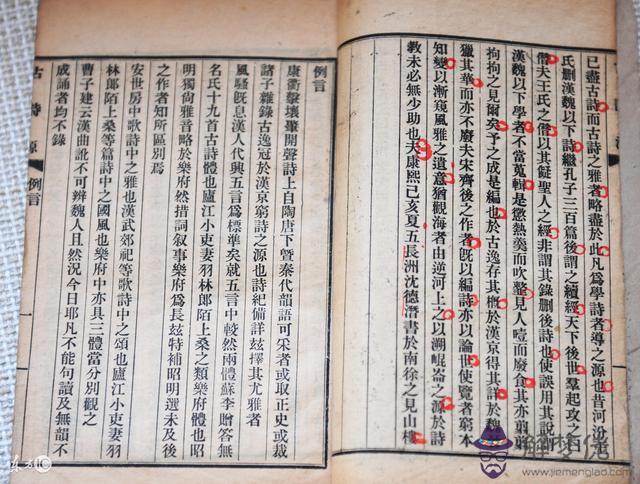 已盡古詩而古詩之雅者略盡於此凡為學詩者導之源也昔河汾王
氏刪漢魏以下詩繼孔子三百篇後謂之續經天下後世羣起攻之曰
僭夫王氏之僭以其儗聖人之經非謂其錄刪後詩也使誤用其說謂
漢魏以下學者不當蒐輯是懲熱羹而吹虀見人噎而廢食其亦翦翦
拘拘之見爾矣予之成是編也於古逸存其概於漢京得其詳於魏晉
獵其華而亦不廢夫宋齊後之作者既以編詩亦以論世使覽者窮本
知變以漸窺風雅之遺意猶觀海者由逆河上之以溯崐崙之源於詩
教未必無少助也夫康熙己亥夏五長洲沈德潛書於南徐之見山樓
例言
康衢擊壤肇開聲詩上自陶唐下暨秦代韻語可采者或取正史或裁
諸子雜錄古逸冠於漢京窮詩之源也詩紀備詳茲擇其尤雅者
風騷既息漢人代興五言為標準矣就五言中較然兩體蘇李贈答無
名氏十九首古詩體也廬江小吏妻羽林郎陌上桑之類樂府體也昭
明獨尚雅音略於樂府然措詞叙事樂府為長茲特補昭明選未及後
之作者知所區別焉
安世房中歌詩中之雅也漢武郊祀等歌詩中之頌也廬江小吏妻羽
林郎陌上桑等篇詩中之國風也樂府中亦具三體當分別觀之
曹子建云漢曲訛不可辨魏人且然況今日耶凡不能句讀及無韻不
成誦者均不錄
古詩源
例言
一
www.jiemenglad.com